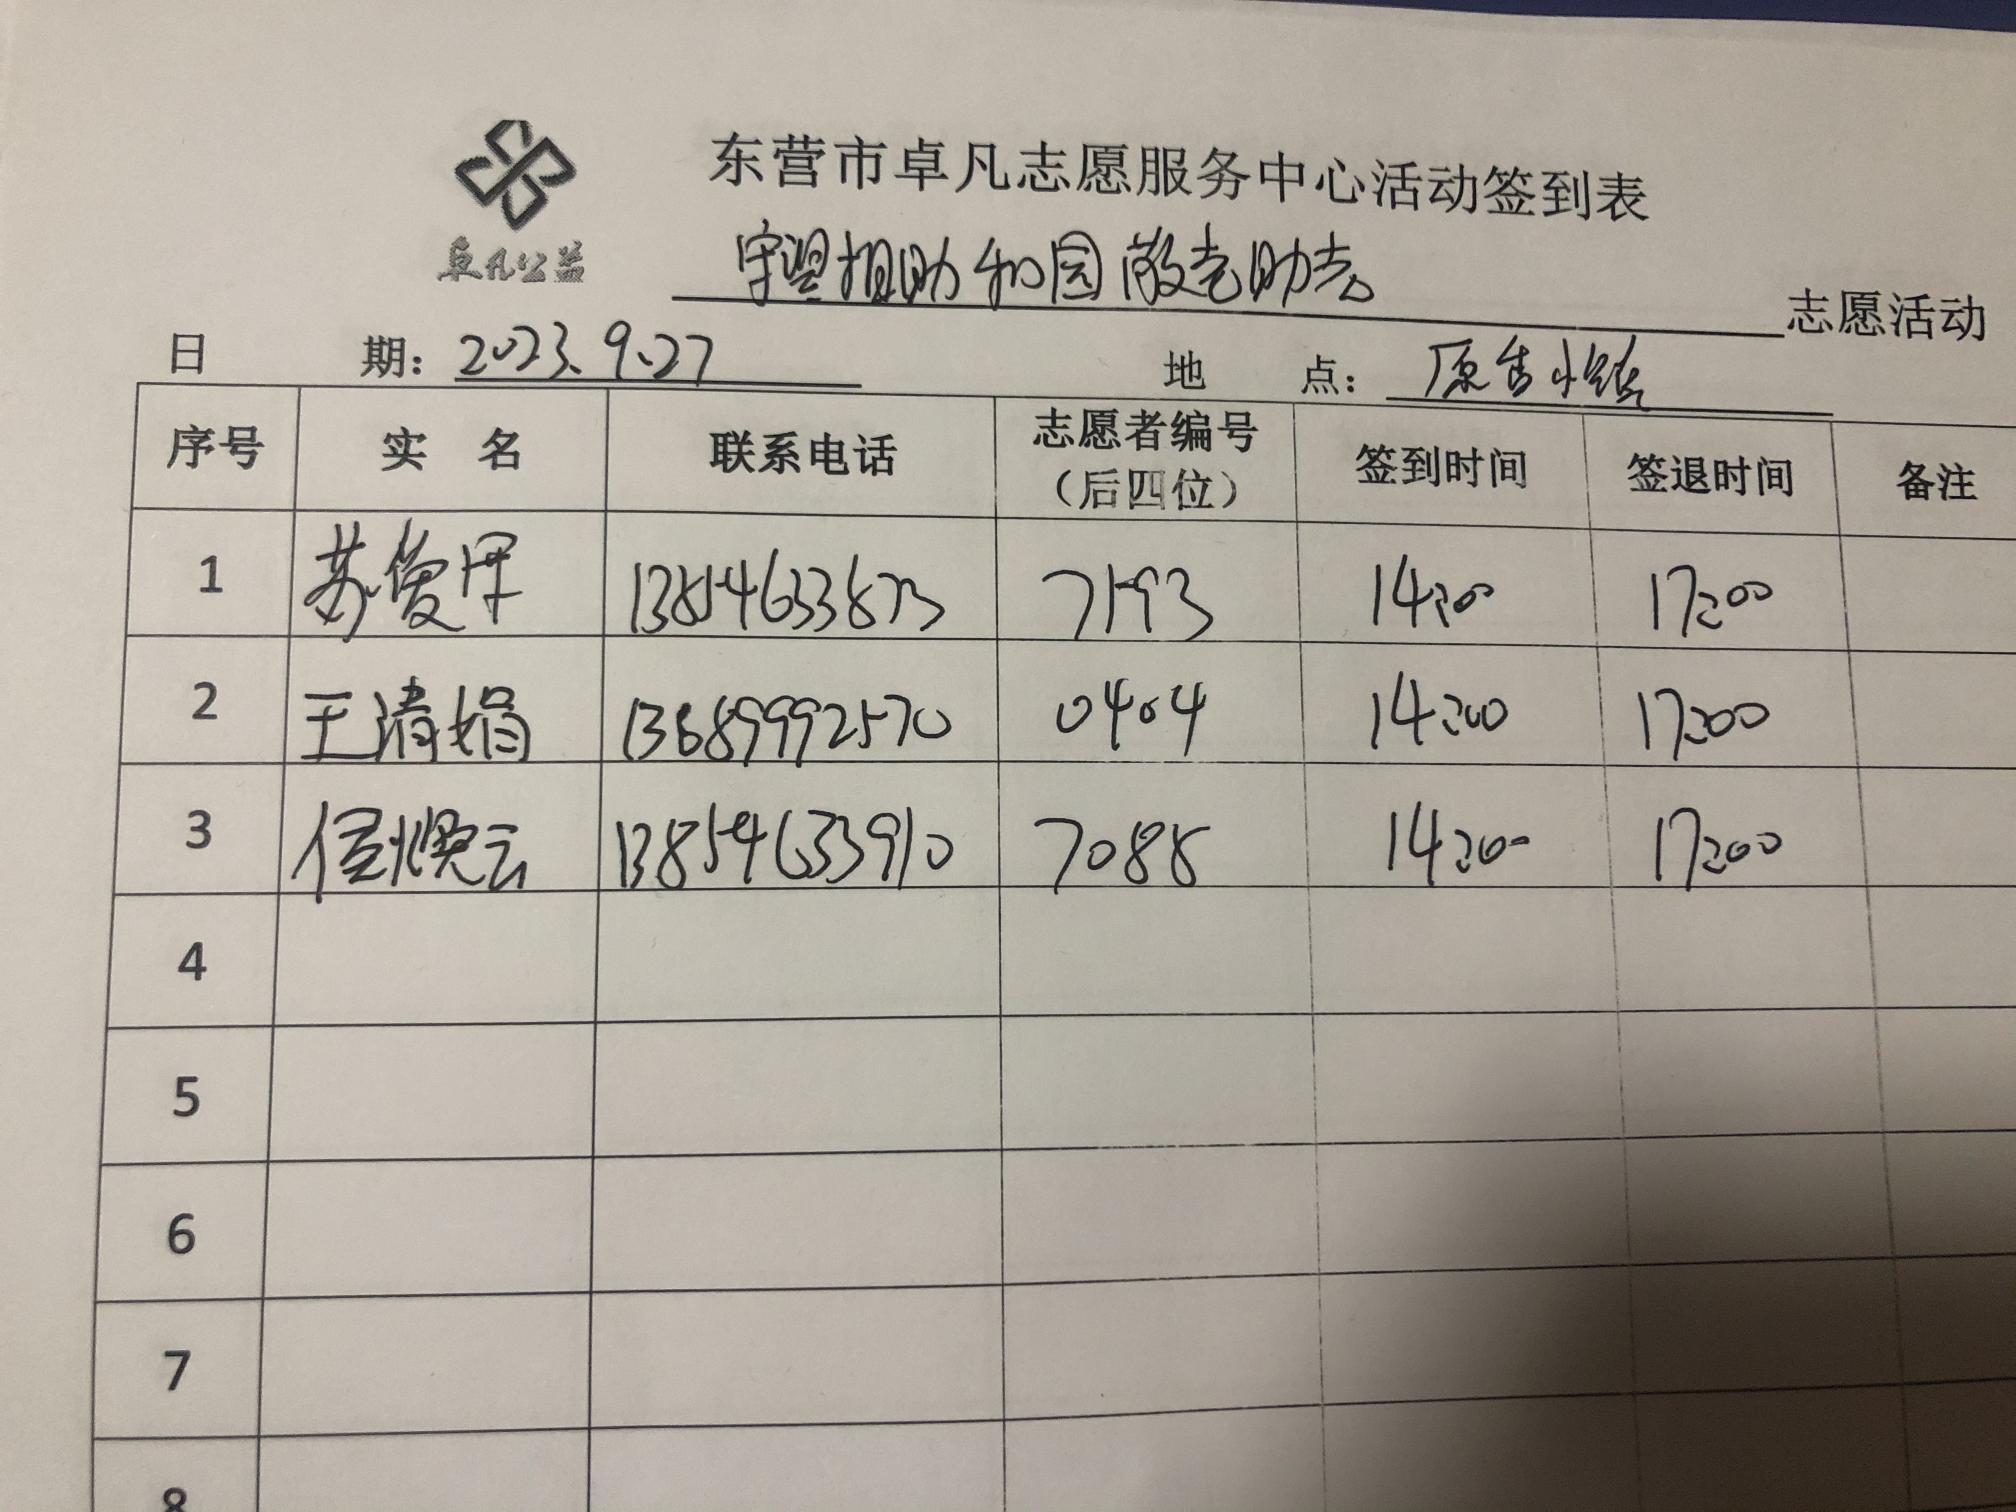 东营市卓凡志愿服务中心活动签到表
卓凡公益
守望相助和园敬老助老志愿活动
日 期: 2023.9.27 地 点:
序号 实 名 联系电话 志愿者编号(后四位) 签到时间 签退时间 备注
1 苏俊 13854633873 7193 14:00 17:00
2 王清娟 13689992570 0404 14:00 17:00
3 侯焕云 13854633910 7088 14:00 17:00
4
5
6
7
8